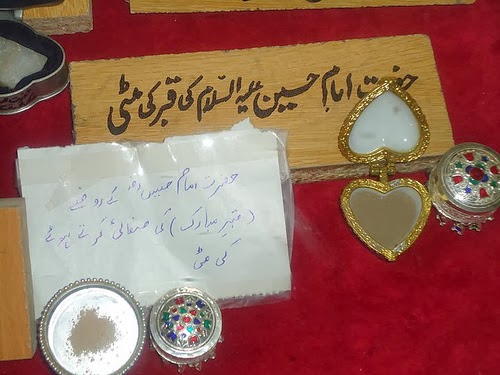 حضرت امام حسین علیہ السلام کی قبر کی مٹی
حضرت امام حسین رضہ کے روضے
(قبر مبارک) کی صفائی کرتے ہوئے
کی مٹی